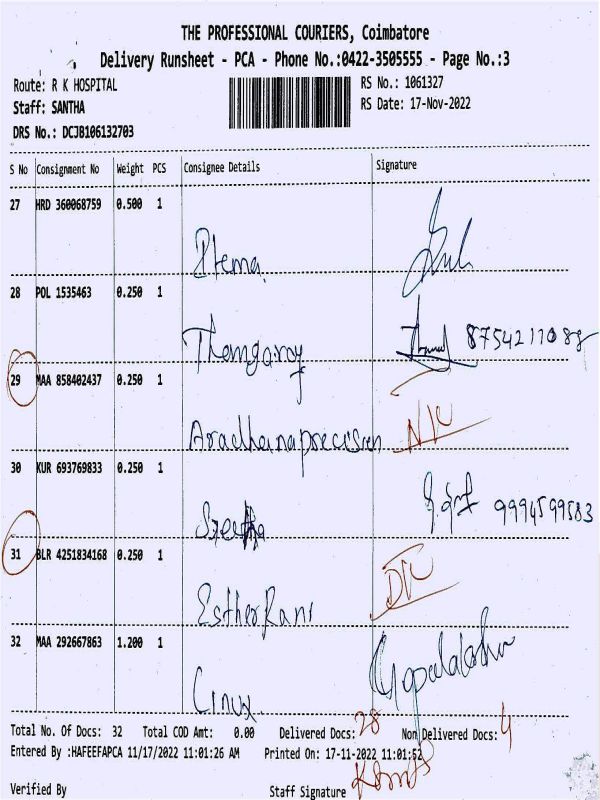 THE PROFESSIONAL COURIERS, Coimbatore
Delivery Runsheet - PCA - Phone No.:0422-3505555 - Page No.:3
Route: R K HOSPITAL
RS No.: 1061327
Staff: SANTHA
RS Date: 17-Nov-2022
DRS No.: DCJB106132703
S No Consignment No Weight PCS Consignee Details Signature
27 HRD 360068759 0.500 1
28 POL 1535463 0.250 1
Thangaroy 8754211088
29 MAA 858402437 0.250 1
Aradhanaprecision
30 KUR 693769833 0.250 1
9994599583
31 BLR 4251834168 0.250 1
Esther Rani
32 MAA 292667863 1.200 1
Linux Gopalakshn
Total No. Of Docs: 32 Total COD Amt: 0.00 Delivered Docs: 28 Non Delivered Docs: 4
Entered By :HAFEEFAPCA 11/17/2022 11:01:26 AM Printed On: 17-11-2022 11:01:52
Verified By Staff Signature